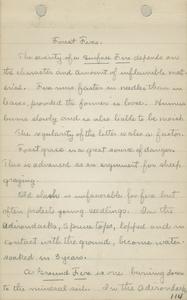 Forest Fires.
The severity of a Surface Fire depends on
the character and amount of inflamable mat-
erial. Fire runs faster in needles than in
leaves, provided the former is loose. Humus
burns slowly and is also liable to be moist.
The regularity of the litter is also a factor.
Forest grass is a great source of danger.
This is advanced as an argument for sheep
grazing.
Old slash is unfavorable for fire but
often protects young seedlings. In the
Adirondacks, spruce tops, lopped and in
contact with the ground, become water-
soaked in 3 years.
A Ground Fire is one burning down
to the mineral soil. In the Adirondacks